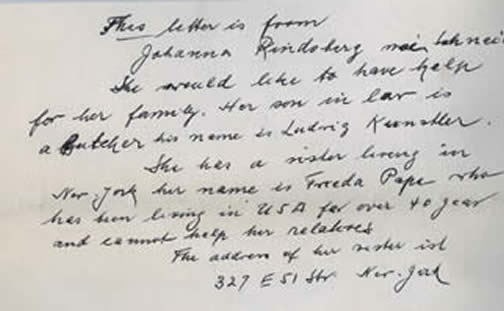 This letter is from
Johanna Rindsberg
She would like to have help
for her family. Her son in lar is
a Butcher his name is Ludwig Kunstler.
She has a sister living in
New-York her name is Freeda Pape who
has been living in USA for over 40 year
and cannot help her relatives
The address of her sister ist
327 E 51 Str. New-York